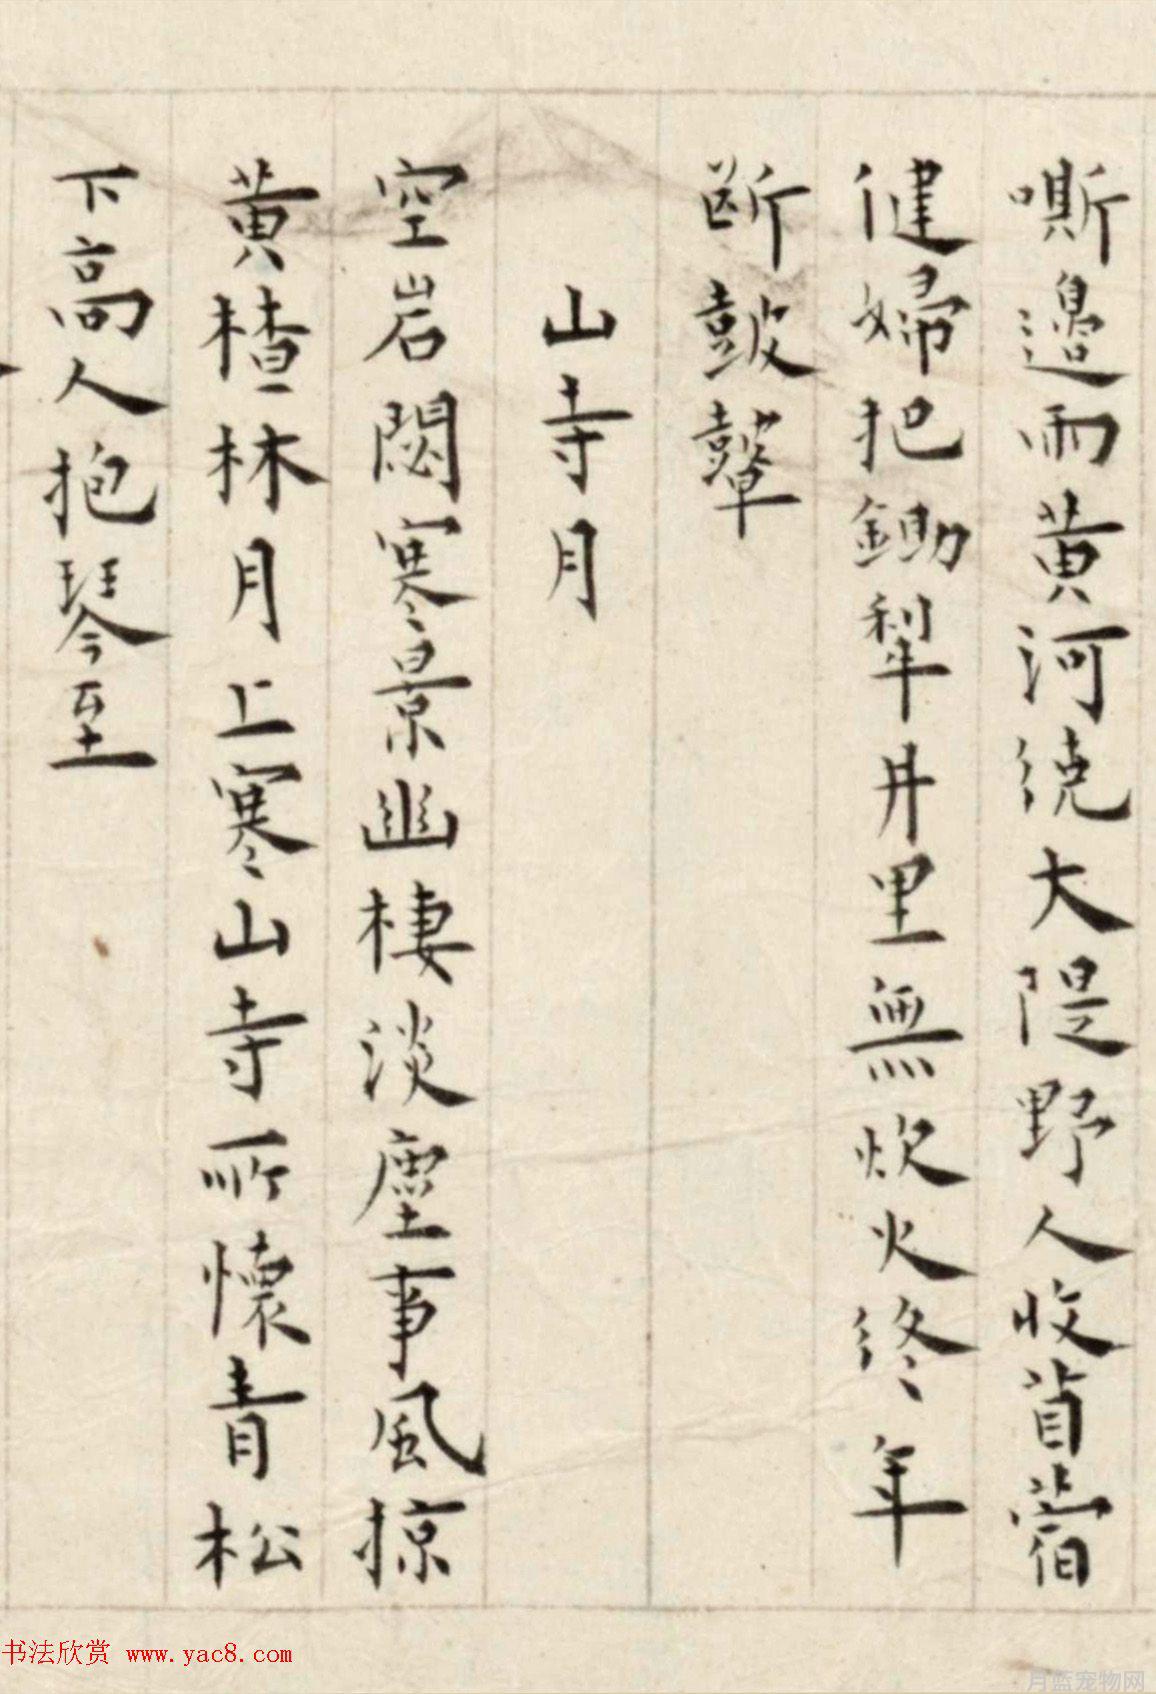 嘶邊雨黄河繞大隄野人收苜蓿
健婦把鋤犁井里無炊火終年
斷鼓鼙
山寺月
空岩閟寒景幽棲淡塵事風掠
黄楂林月上寒山寺所懷青松
下高人抱琴至
书法欣赏 www.yac8.com
月蓝宠物网